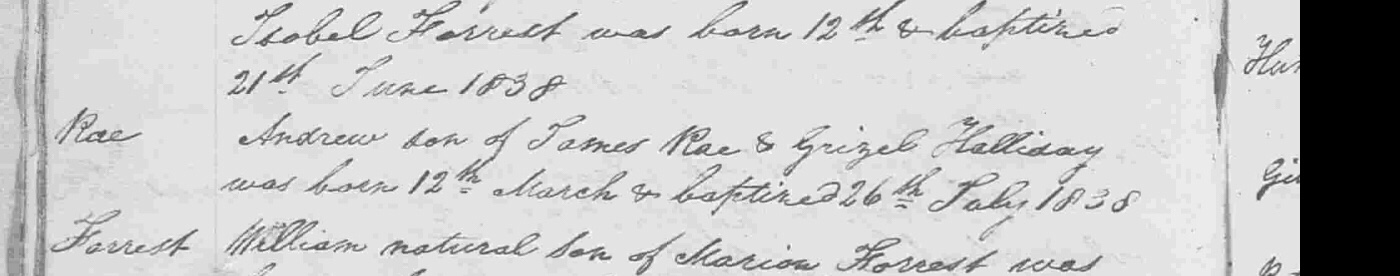 Isobel Forrest was born 12th & baptized
21th June 1838
Rae Andrew son of James Rae & Grizel Halliday
was born 12th March & baptized 26th July 1838
Forrest William natural son of Marion Forrest was